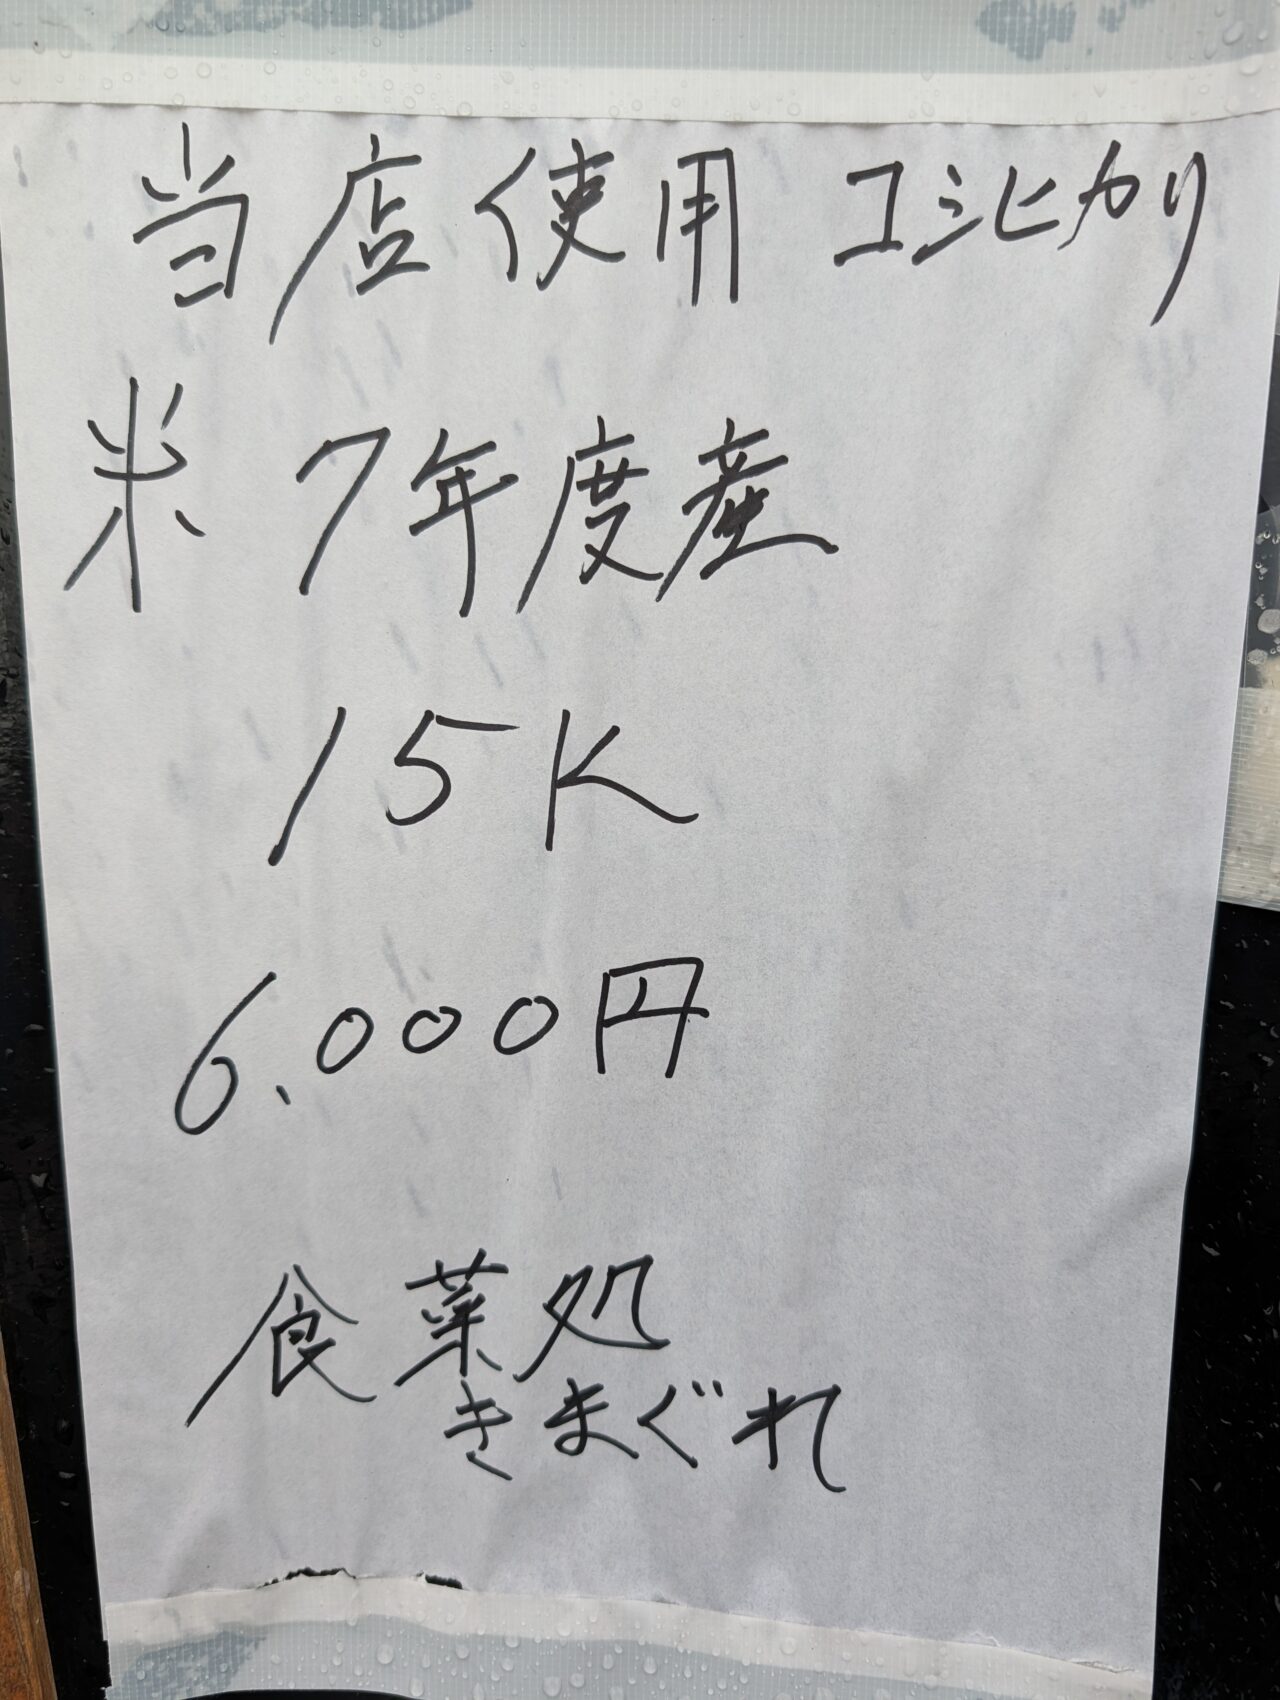 当店使用 コシヒカリ
米 7年度産
15K
6.000円
食菜処
きまぐれ